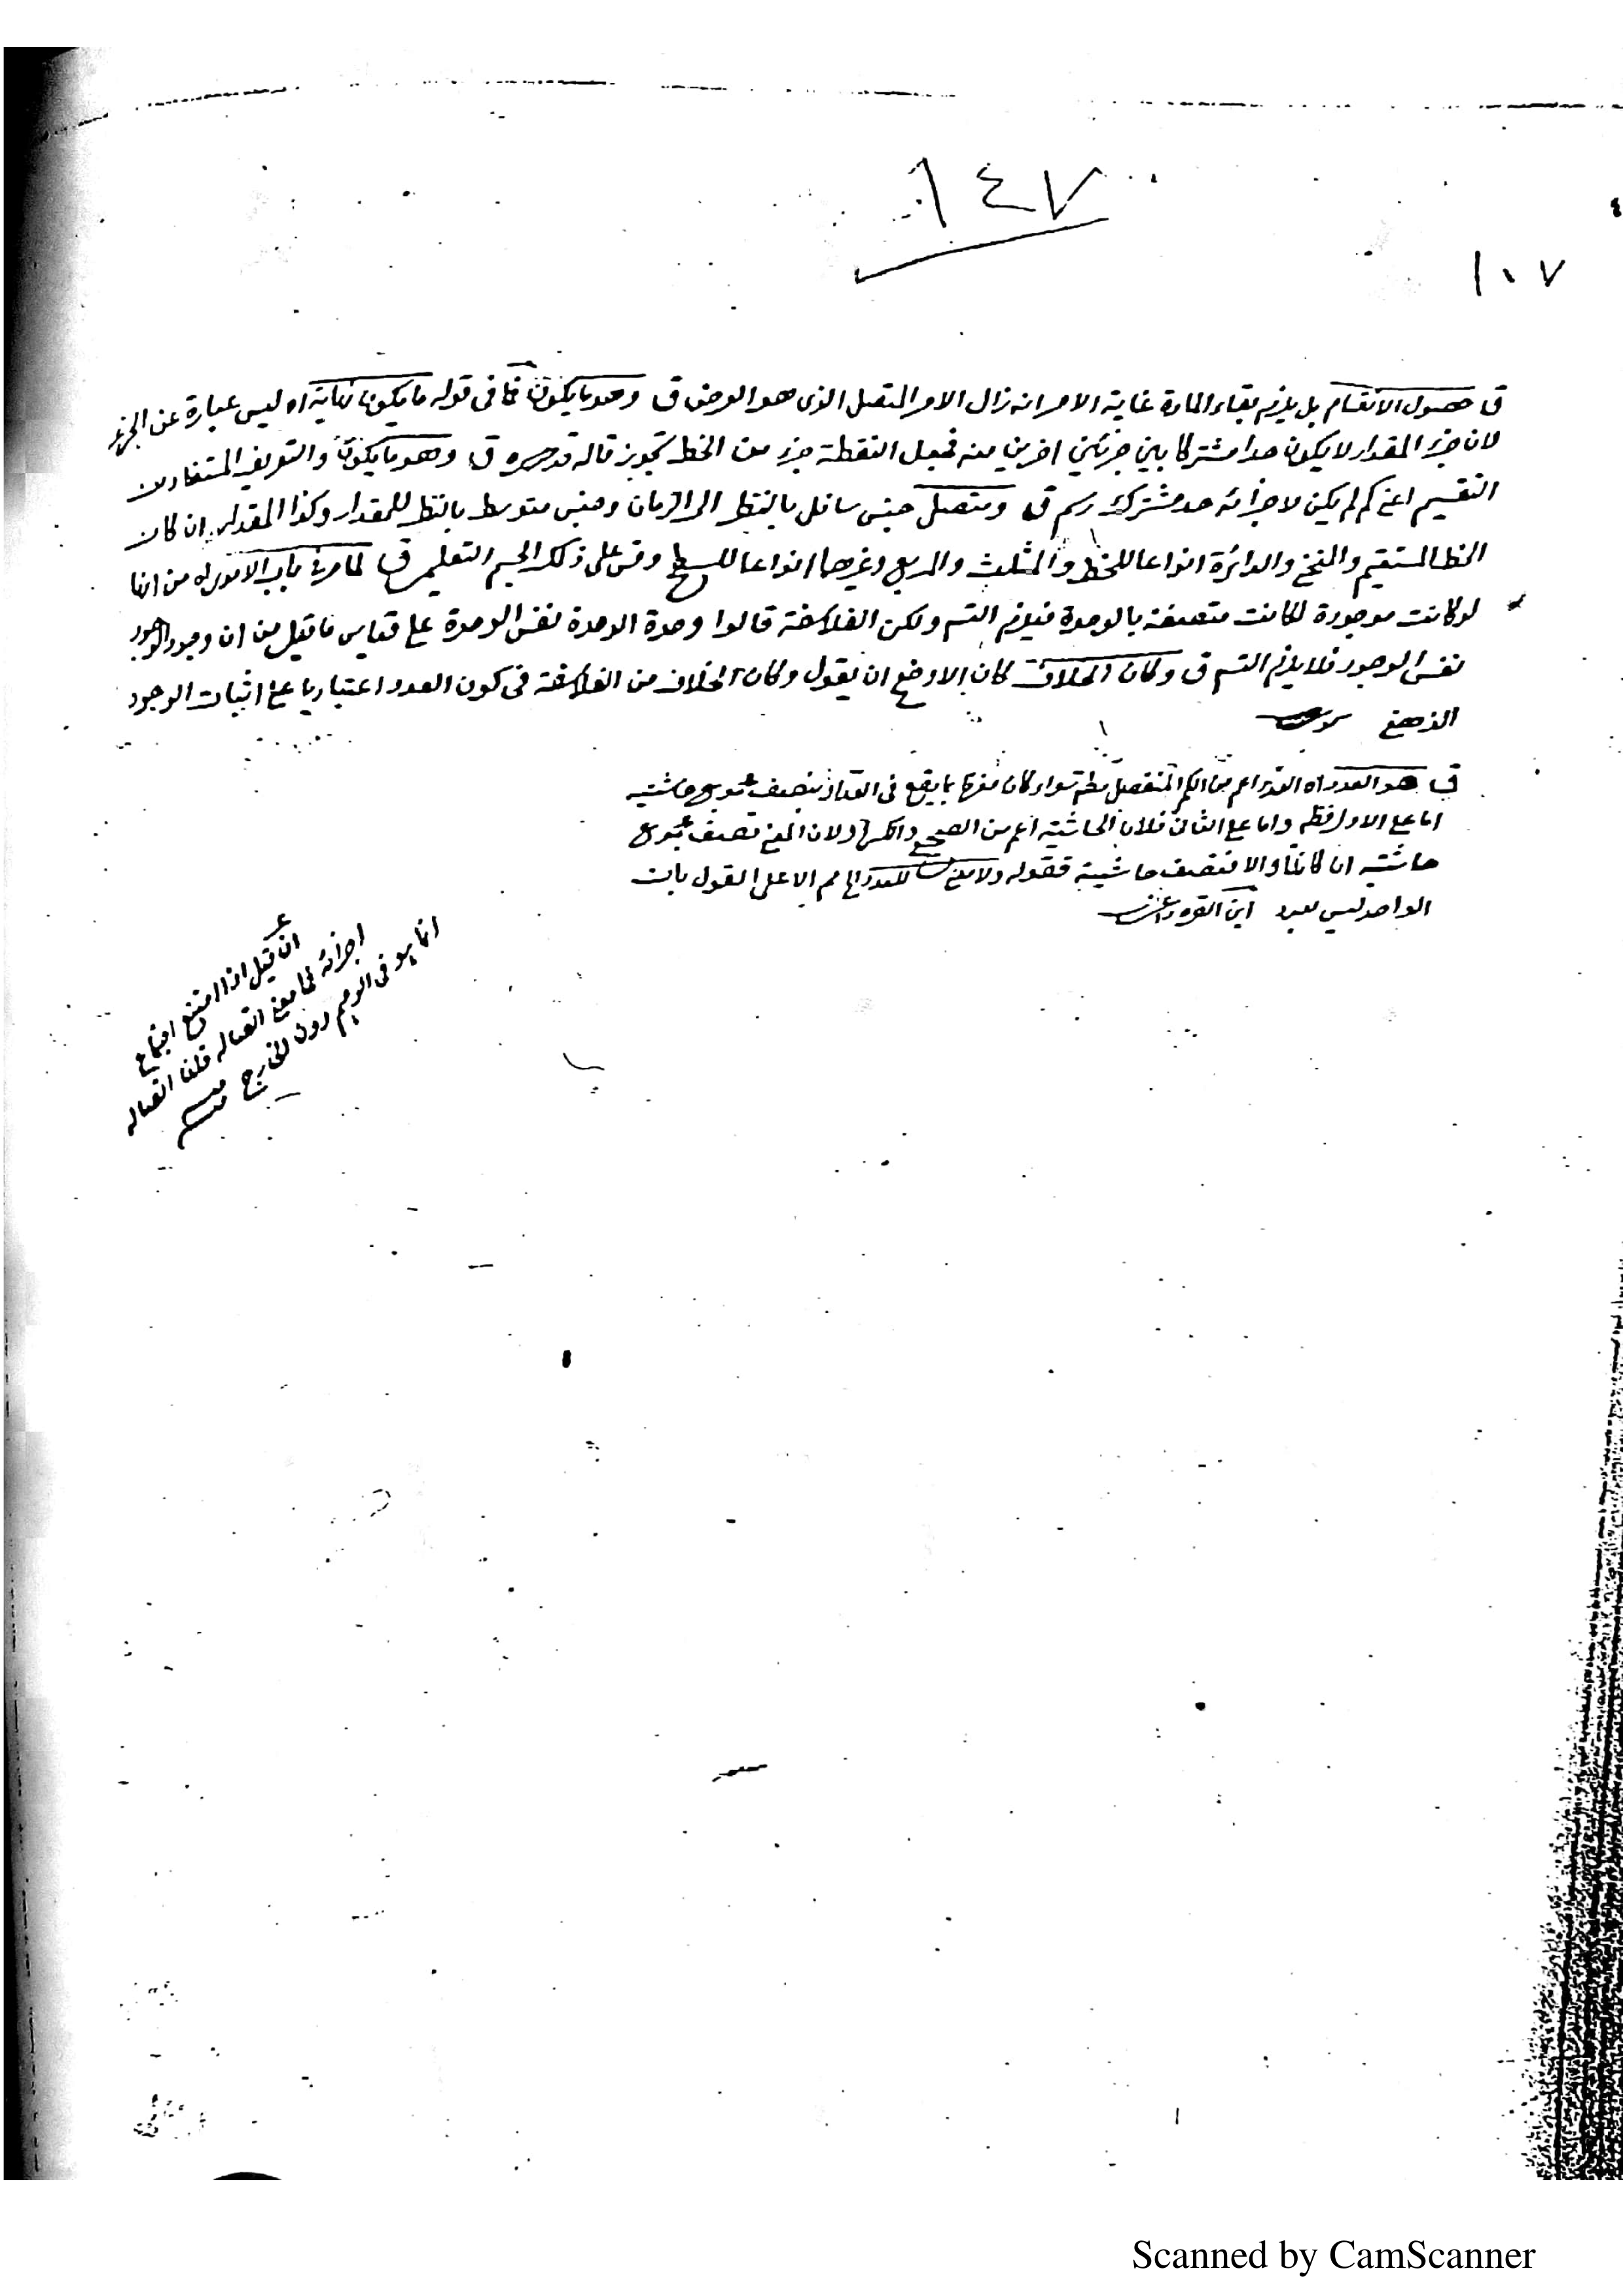 ١٤٧
١٠٧
ق حصول الانقسام بل يلزم بقاء المادة غاية الامر انه زال الامر المتصل الذى هو العرض ق وهو ما يكون كما فى قوله ما يكون نهاية اه ليس عبارة عن الجزء
لان جزء المقدار لا يكون حدا مشتركا بين جزئين اخرين منه فجعل النقطة جزء من الخط تجويز قاله قدس سره ق وهو ما يكون والتعريف المستفاد من
التقسيم اعنى كم لم يكن لاجزائه حد مشترك رسم ق ومتصل جنس سافل بالنظر الى الزمان وجنس متوسط بالنظر للمقدار وكذا المقدار ان كان
الخط المستقيم والمنحنى والدائرة انواعا للخط والمثلث والمربع وغيرهما انواعا للسطح وقس على ذلك الجسم التعليمى ق لما مر فى باب الامور اه من انها
لو كانت موجودة لكانت متصفة بالوحدة فيلزم التسم ولكن الفلاسفة قالوا وحدة الوحدة نفس الوحدة على قياس ما قيل من ان وجود الوجود
نفس الوجود فلا يلزم التسم ق وكان الخلاف كان الاوضح ان يقول وكان الخلاف من الفلاسفة فى كون العدد اعتباريا على اثبات الوجود
الذهنى
ق هو العدد اه العدد اعم من الكم المنفصل مطم سواء كان مفرها بما يقع فى العداد بنصف مجموع حاشيته
اما على الاول فظم واما على الثانى فلان الحاشية اعم من الصحيح والكسر ولان المعنى نصف مجموع
حاشيته ان كانتا والا فنصف حاشية فقوله ولا معنى للعدد الخ لم يتم الا على القول بان
الواحد ليس بعدد ابن القره داغى
ان قيل اذا امتنع اجتماع
اجزائه فما معنى اتصاله قلنا اتصاله
انما هو فى الوهم دون الخارج
Scanned by CamScanner